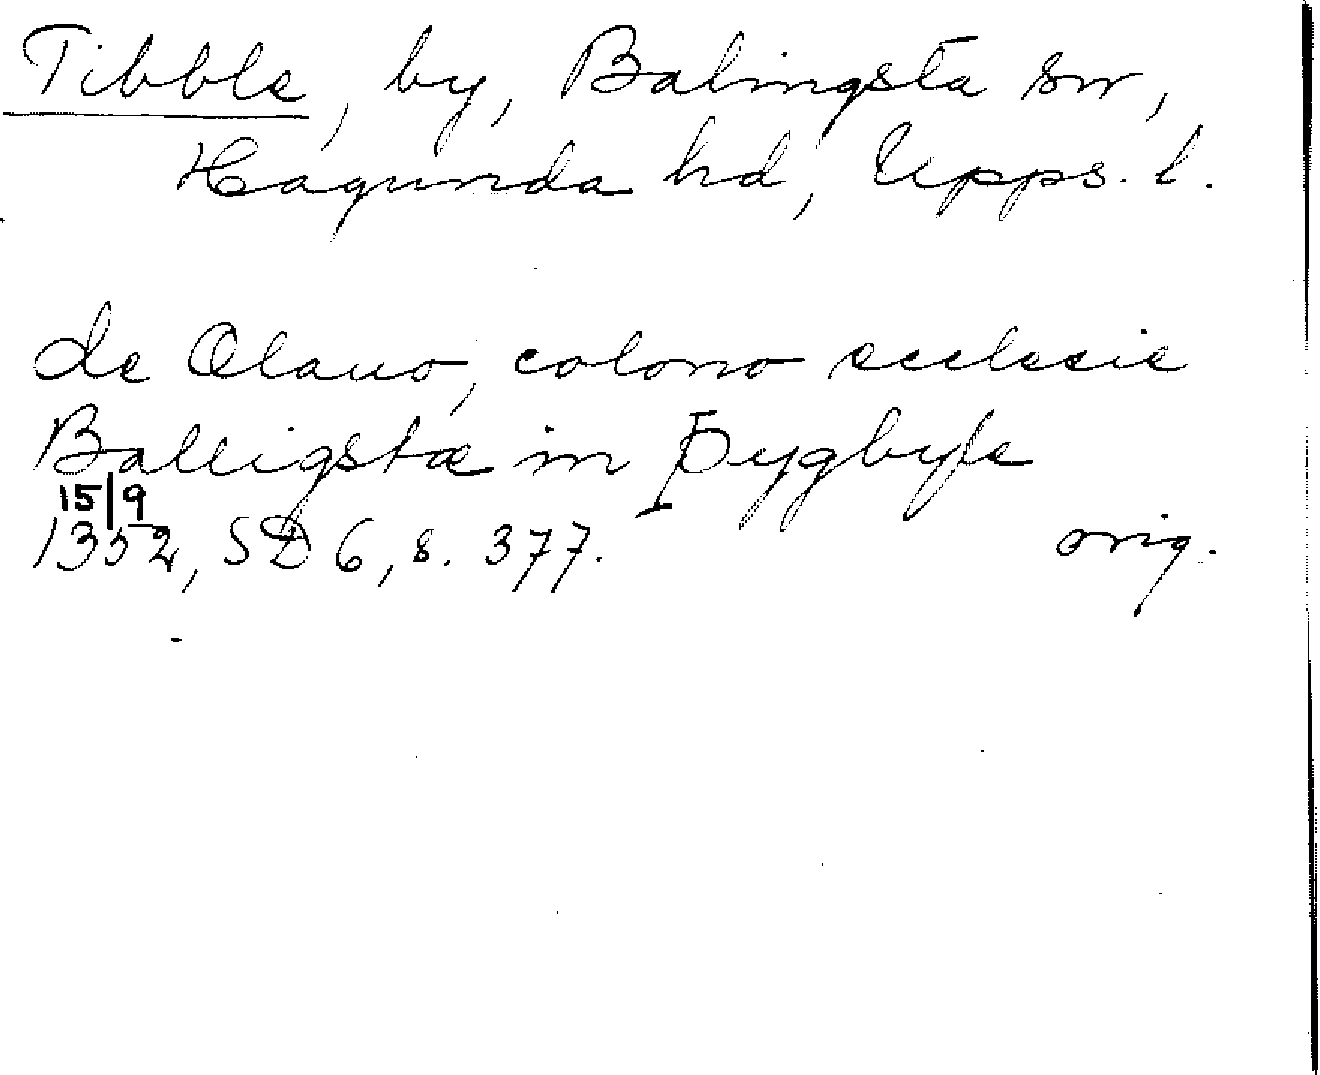 Tibble, by, Balingsta sn,
Hagunda hd, Upps. l.
de Olauo, colono ecclesie
Balleigstæ in Þygbyle
15/9
1352, SD 6, s. 377. orig.